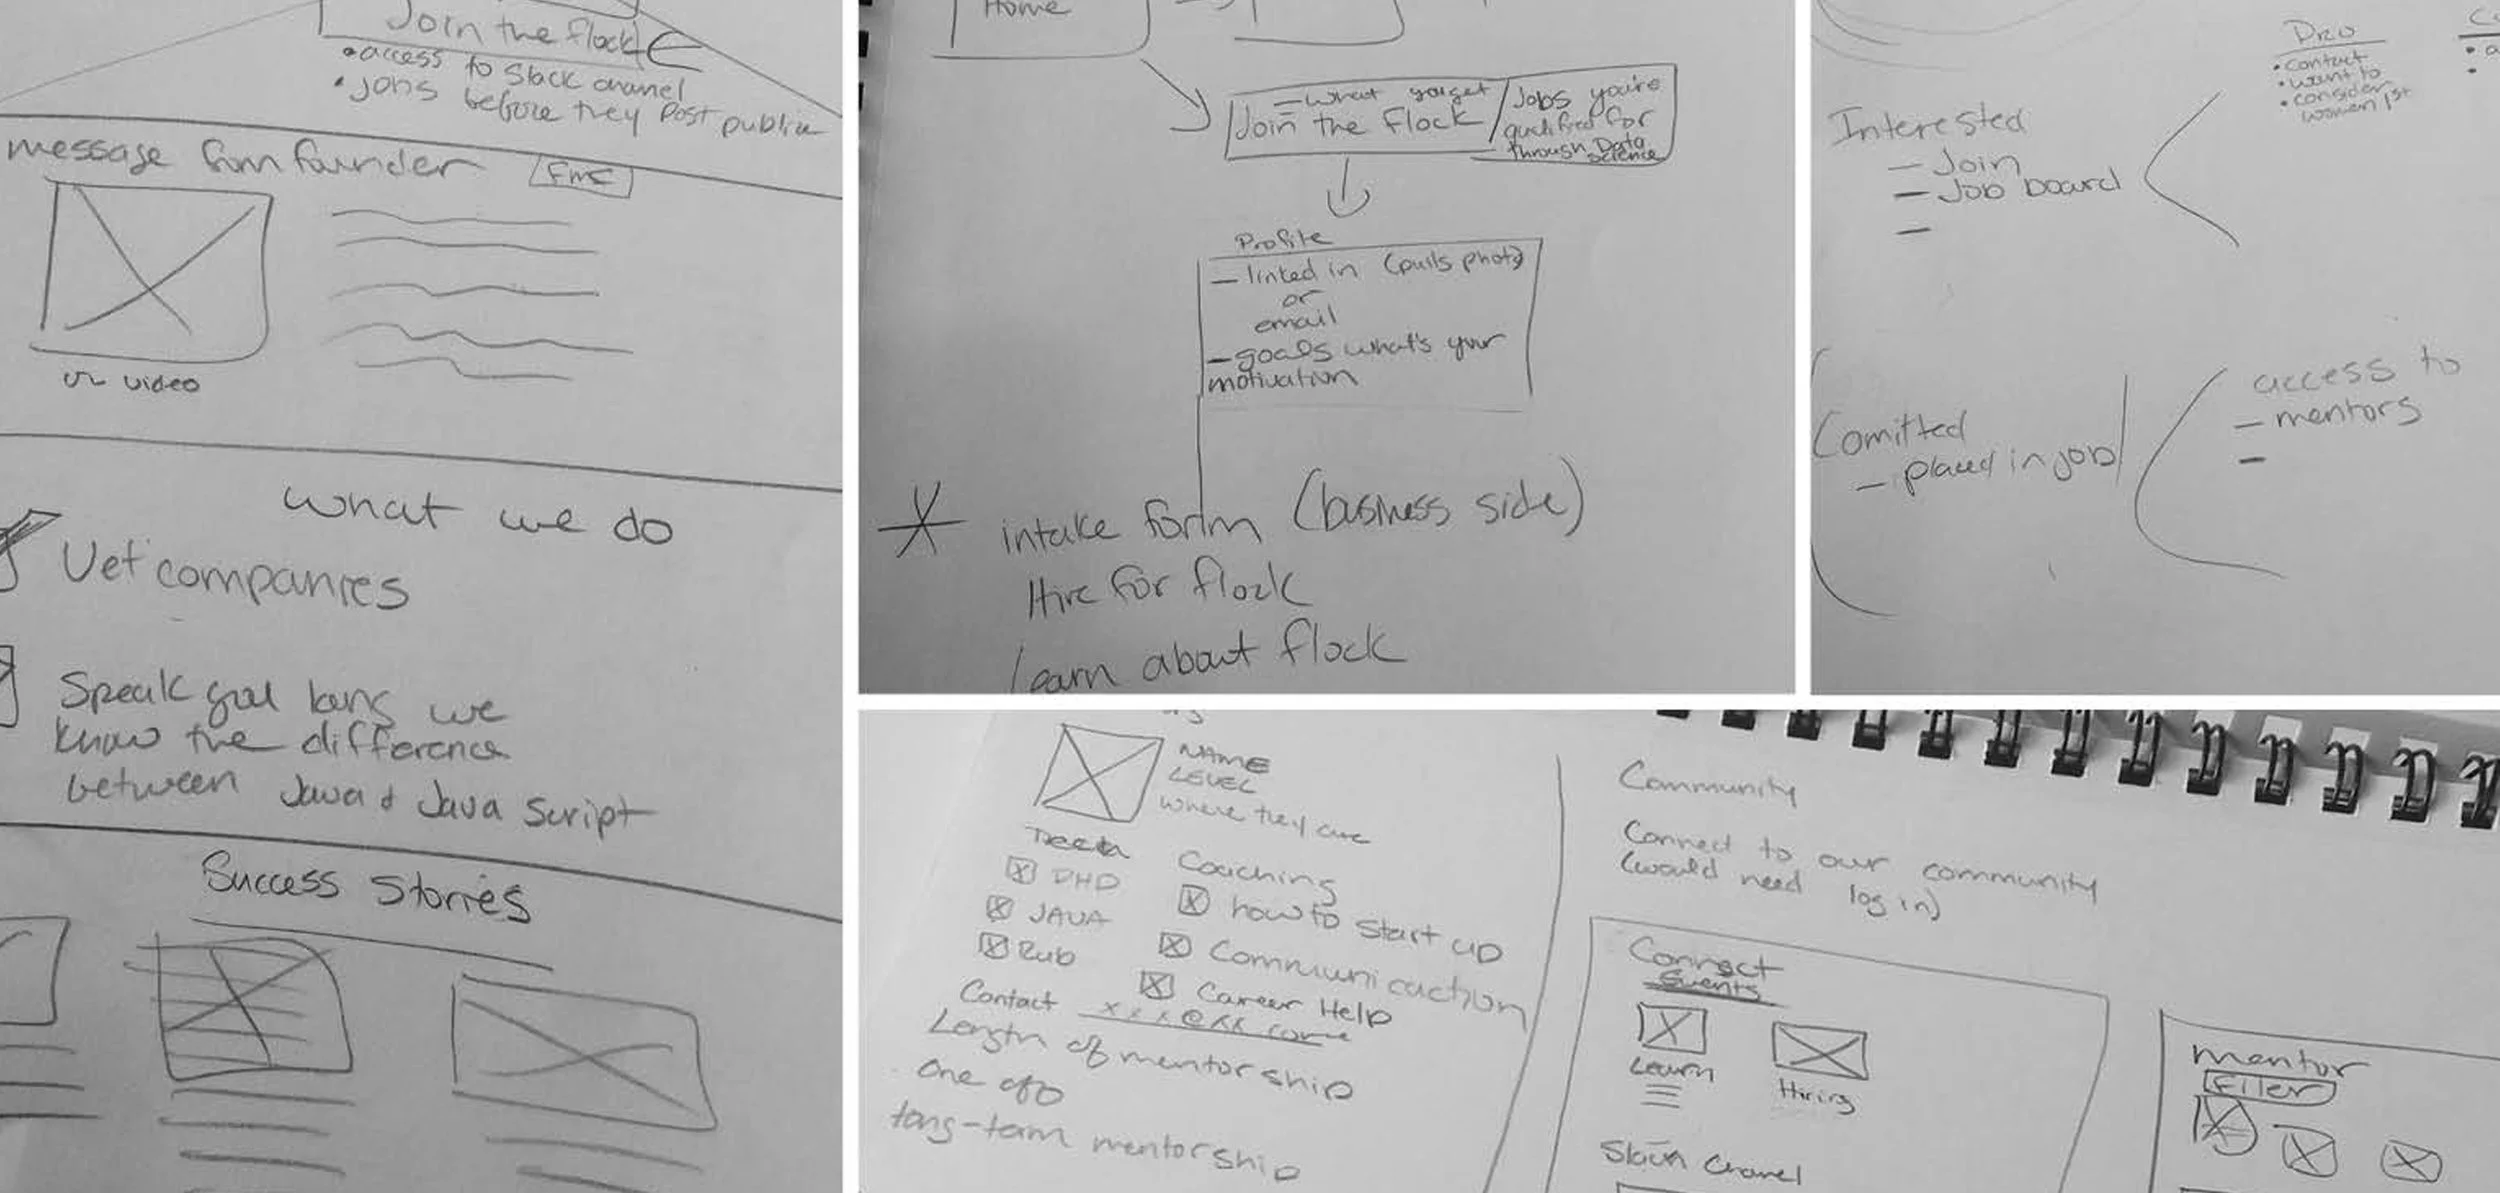 Join the flock
• access to Slack channel
• Jobs before they post public
message from founder
or video
what we do
Vet companies
Speak your lang we
know the difference
between Java & Java Script
Success Stories
Home
— what you get
Join the Flock
Jobs you're
qualified for
through Data
science
Profile
— linked in (pulls photo)
or
email
— goals what's your
motivation
intake form (business side)
Hire for flock
Learn about flock
• contact
• want to
• consider
women 1st
Interested
— Join
— Job board
—
Comitted
— placed in job
access to
— mentors
—
NAME
LEVEL
where they are
Coaching
JAVA
Rub
how to start up
Communicaction
Career Help
Contact xxx@xx.com
Length of mentorship
One off
long-term mentorship
Community
Connect to our community
(would need log in)
Connect
Events
Learn
Hiring
Slack Channel
mentor
Filer